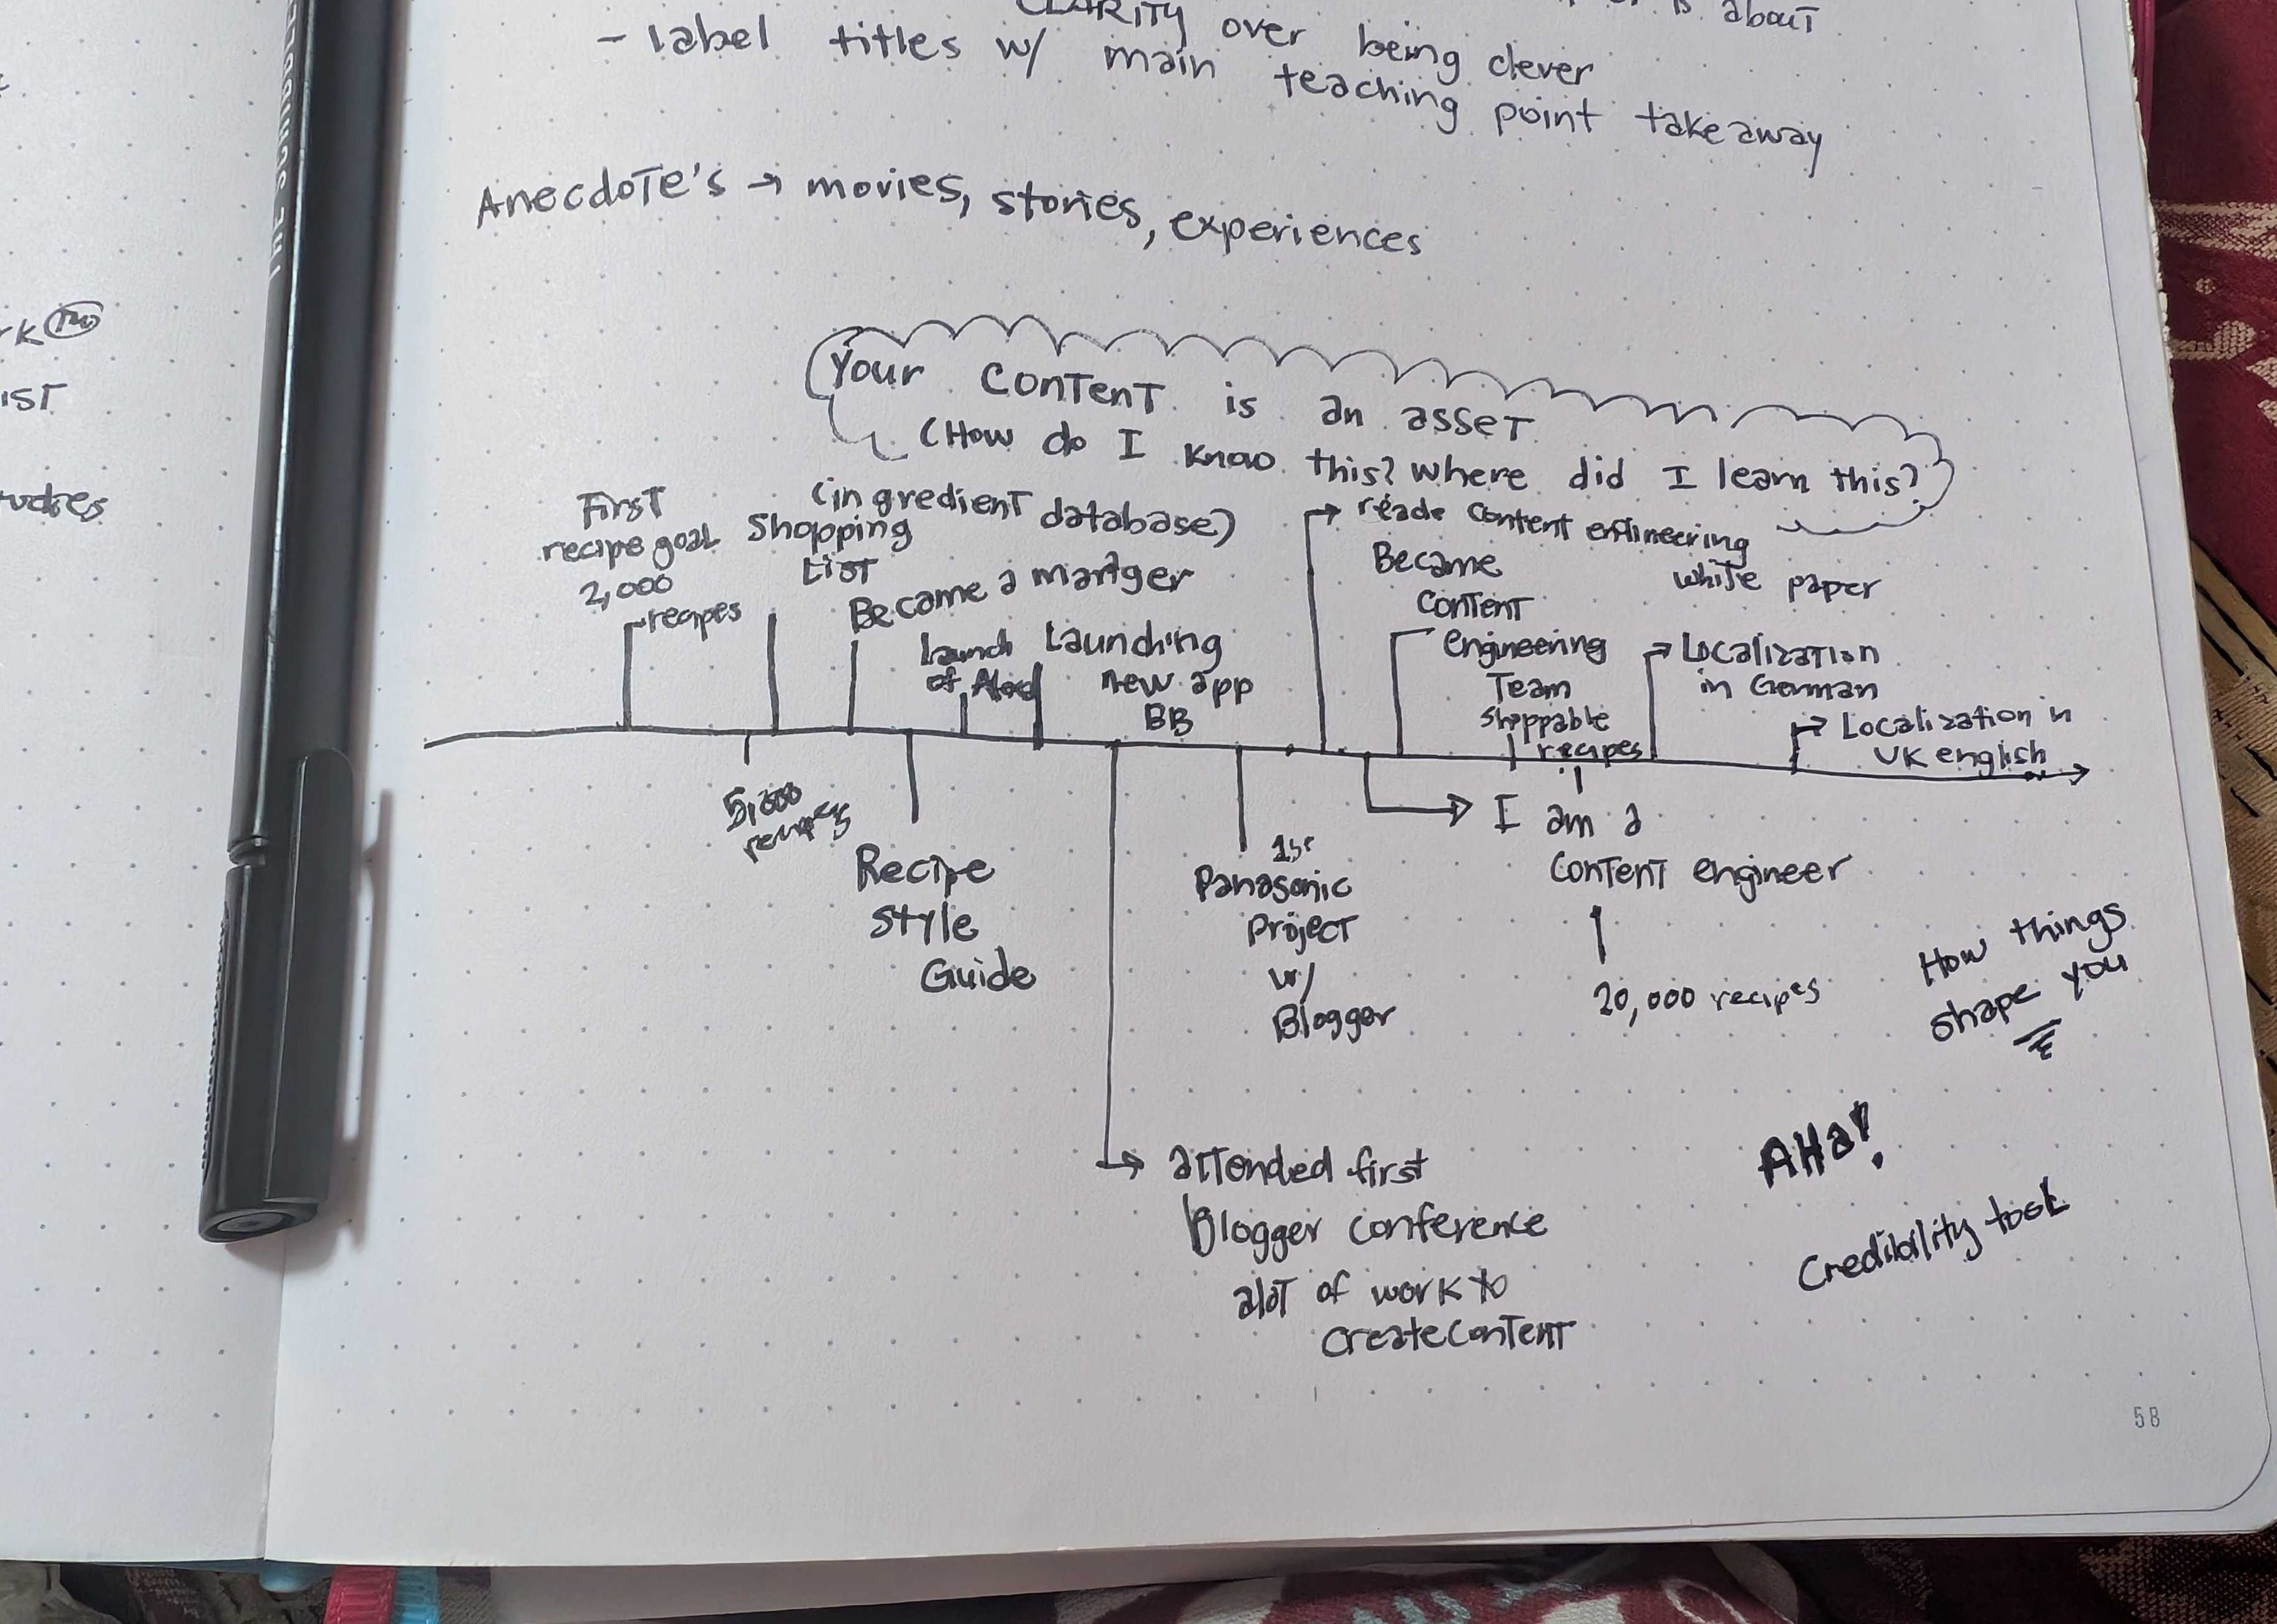 CLARITY over being clever
is about
- label titles w/ main teaching point takeaway
Anecdote's → movies, stories, experiences
rk
IST
Your content is an asset
(How do I know this? Where did I learn this?
First
recipe goal
2,000
recipes
(ingredient database)
Shopping
List
Became a manager
Launch
of
Launching
new app
BB
→ reade content engineering
white paper
Became
content
engineering
Team
shoppable
recipes
→ Localization
in German
→ Localization in
UK english
5,000
recipes
Recipe
Style
Guide
1st
Panasonic
Project
w/
Blogger
→ I am a
content engineer
20,000 recipes
How things
shape you
→ attended first
Blogger conference
alot of work to
create content
AHa!
Credibility took
58